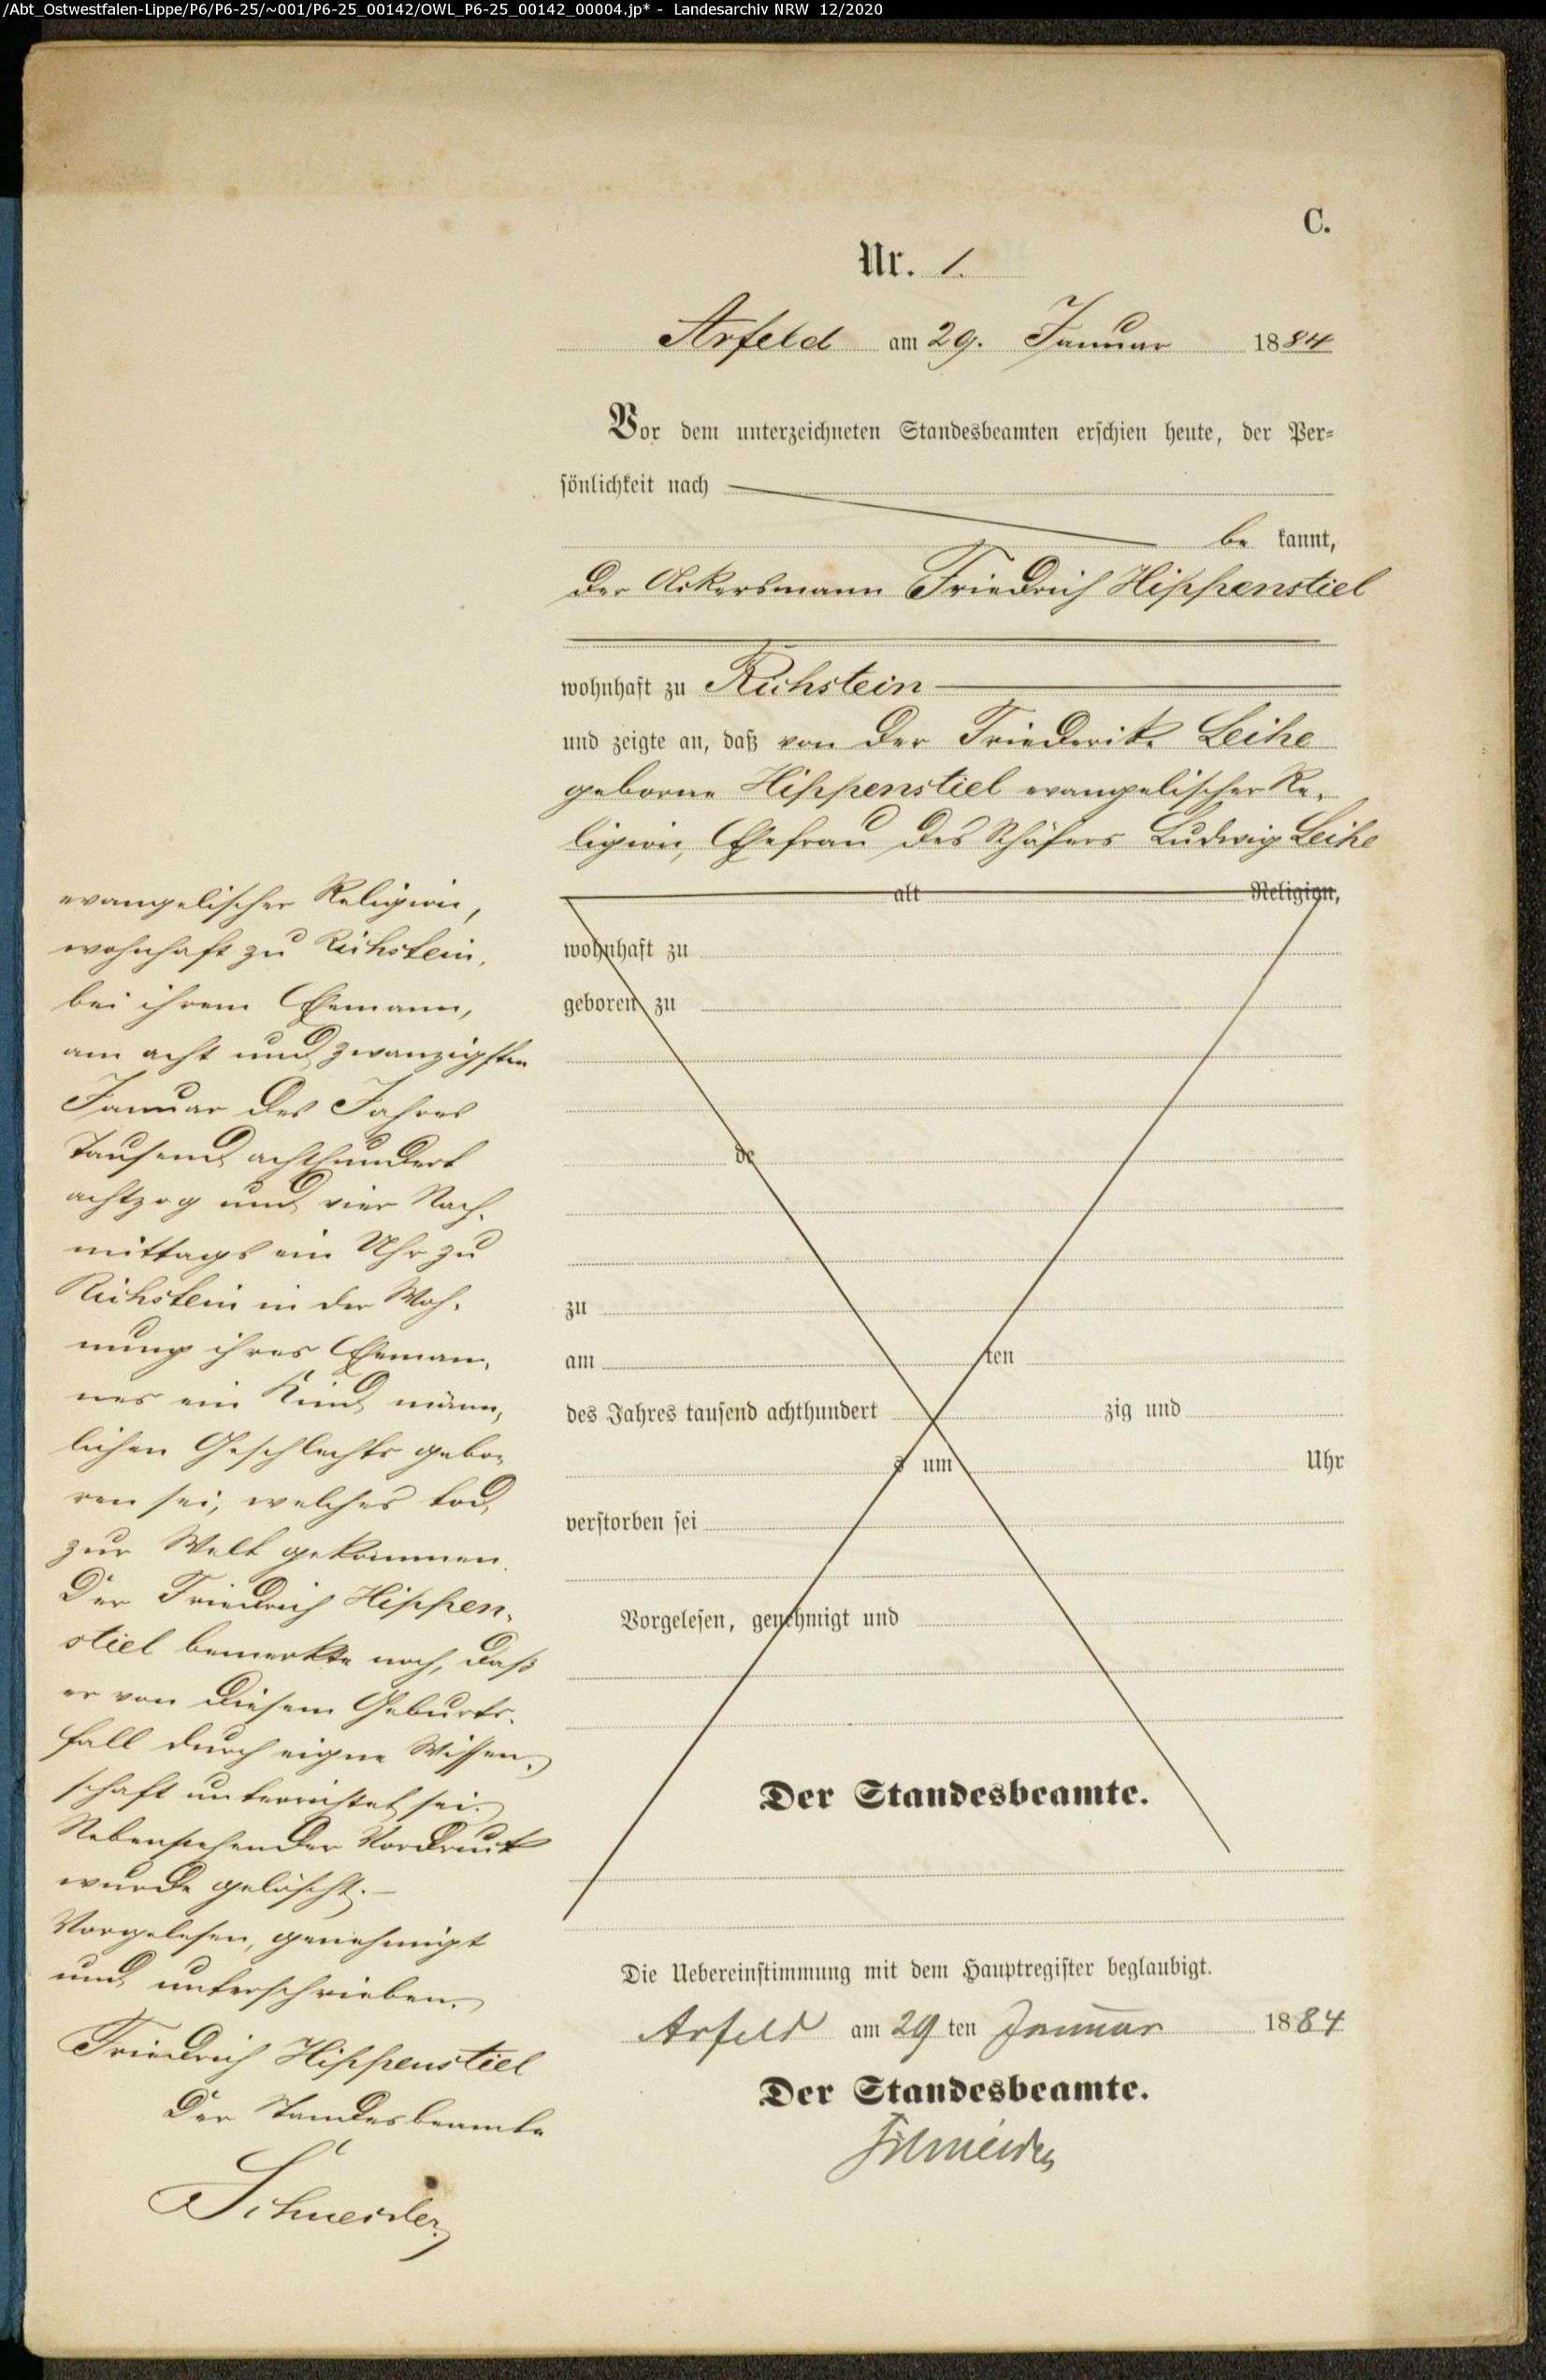 /Abt_Ostwestfalen-Lippe/P6/P6-25/~001/P6-25_00142/OWL_P6-25_00142_00004.jp* - Landesarchiv NRW 12/2020
C.
Nr. 1.
Arfeld am 29. Januar 1884
Vor dem unterzeichneten Standesbeamten erschien heute, der Per-
sönlichkeit nach
be kannt,
der Ackersmann Friedrich Hippenstiel
wohnhaft zu Richstein
und zeigte an, daß von der Friederike Leihe
geborne Hippenstiel evangelischer Re-
ligion, Ehefrau des Schäfers Ludwig Leihe
alt Religion,
wohnhaft zu
geboren zu
de
zu
am ten
des Jahres tausend achthundert zig und
s um Uhr
verstorben sei
Vorgelesen, genehmigt und
Der Standesbeamte.
evangelischer Religion,
wohnhaft zu Richstein,
bei ihrem Ehemann,
am acht und zwanzigsten
Januar des Jahres
tausend achthundert
achtzig und vier Nach-
mittags ein Uhr zu
Richstein in der Woh-
nung ihres Eheman-
nes ein Kind männ-
lichen Geschlechts gebo-
ren sei, welches tod
zur Welt gekommen.
Der Friedrich Hippen-
stiel bemerkte noch, daß
er von diesem Geburts-
fall durch eigne Wissen-
schaft unterrichtet sei.
Nebenstehender Vordruck
wurde gelöscht. —
Vorgelesen, genehmigt
und unterschrieben.
Friedrich Hippenstiel
Der Standesbeamte
Schneider
Die Uebereinstimmung mit dem Hauptregister beglaubigt.
Arfeld am 29 ten Januar 1884
Der Standesbeamte.
Schneider